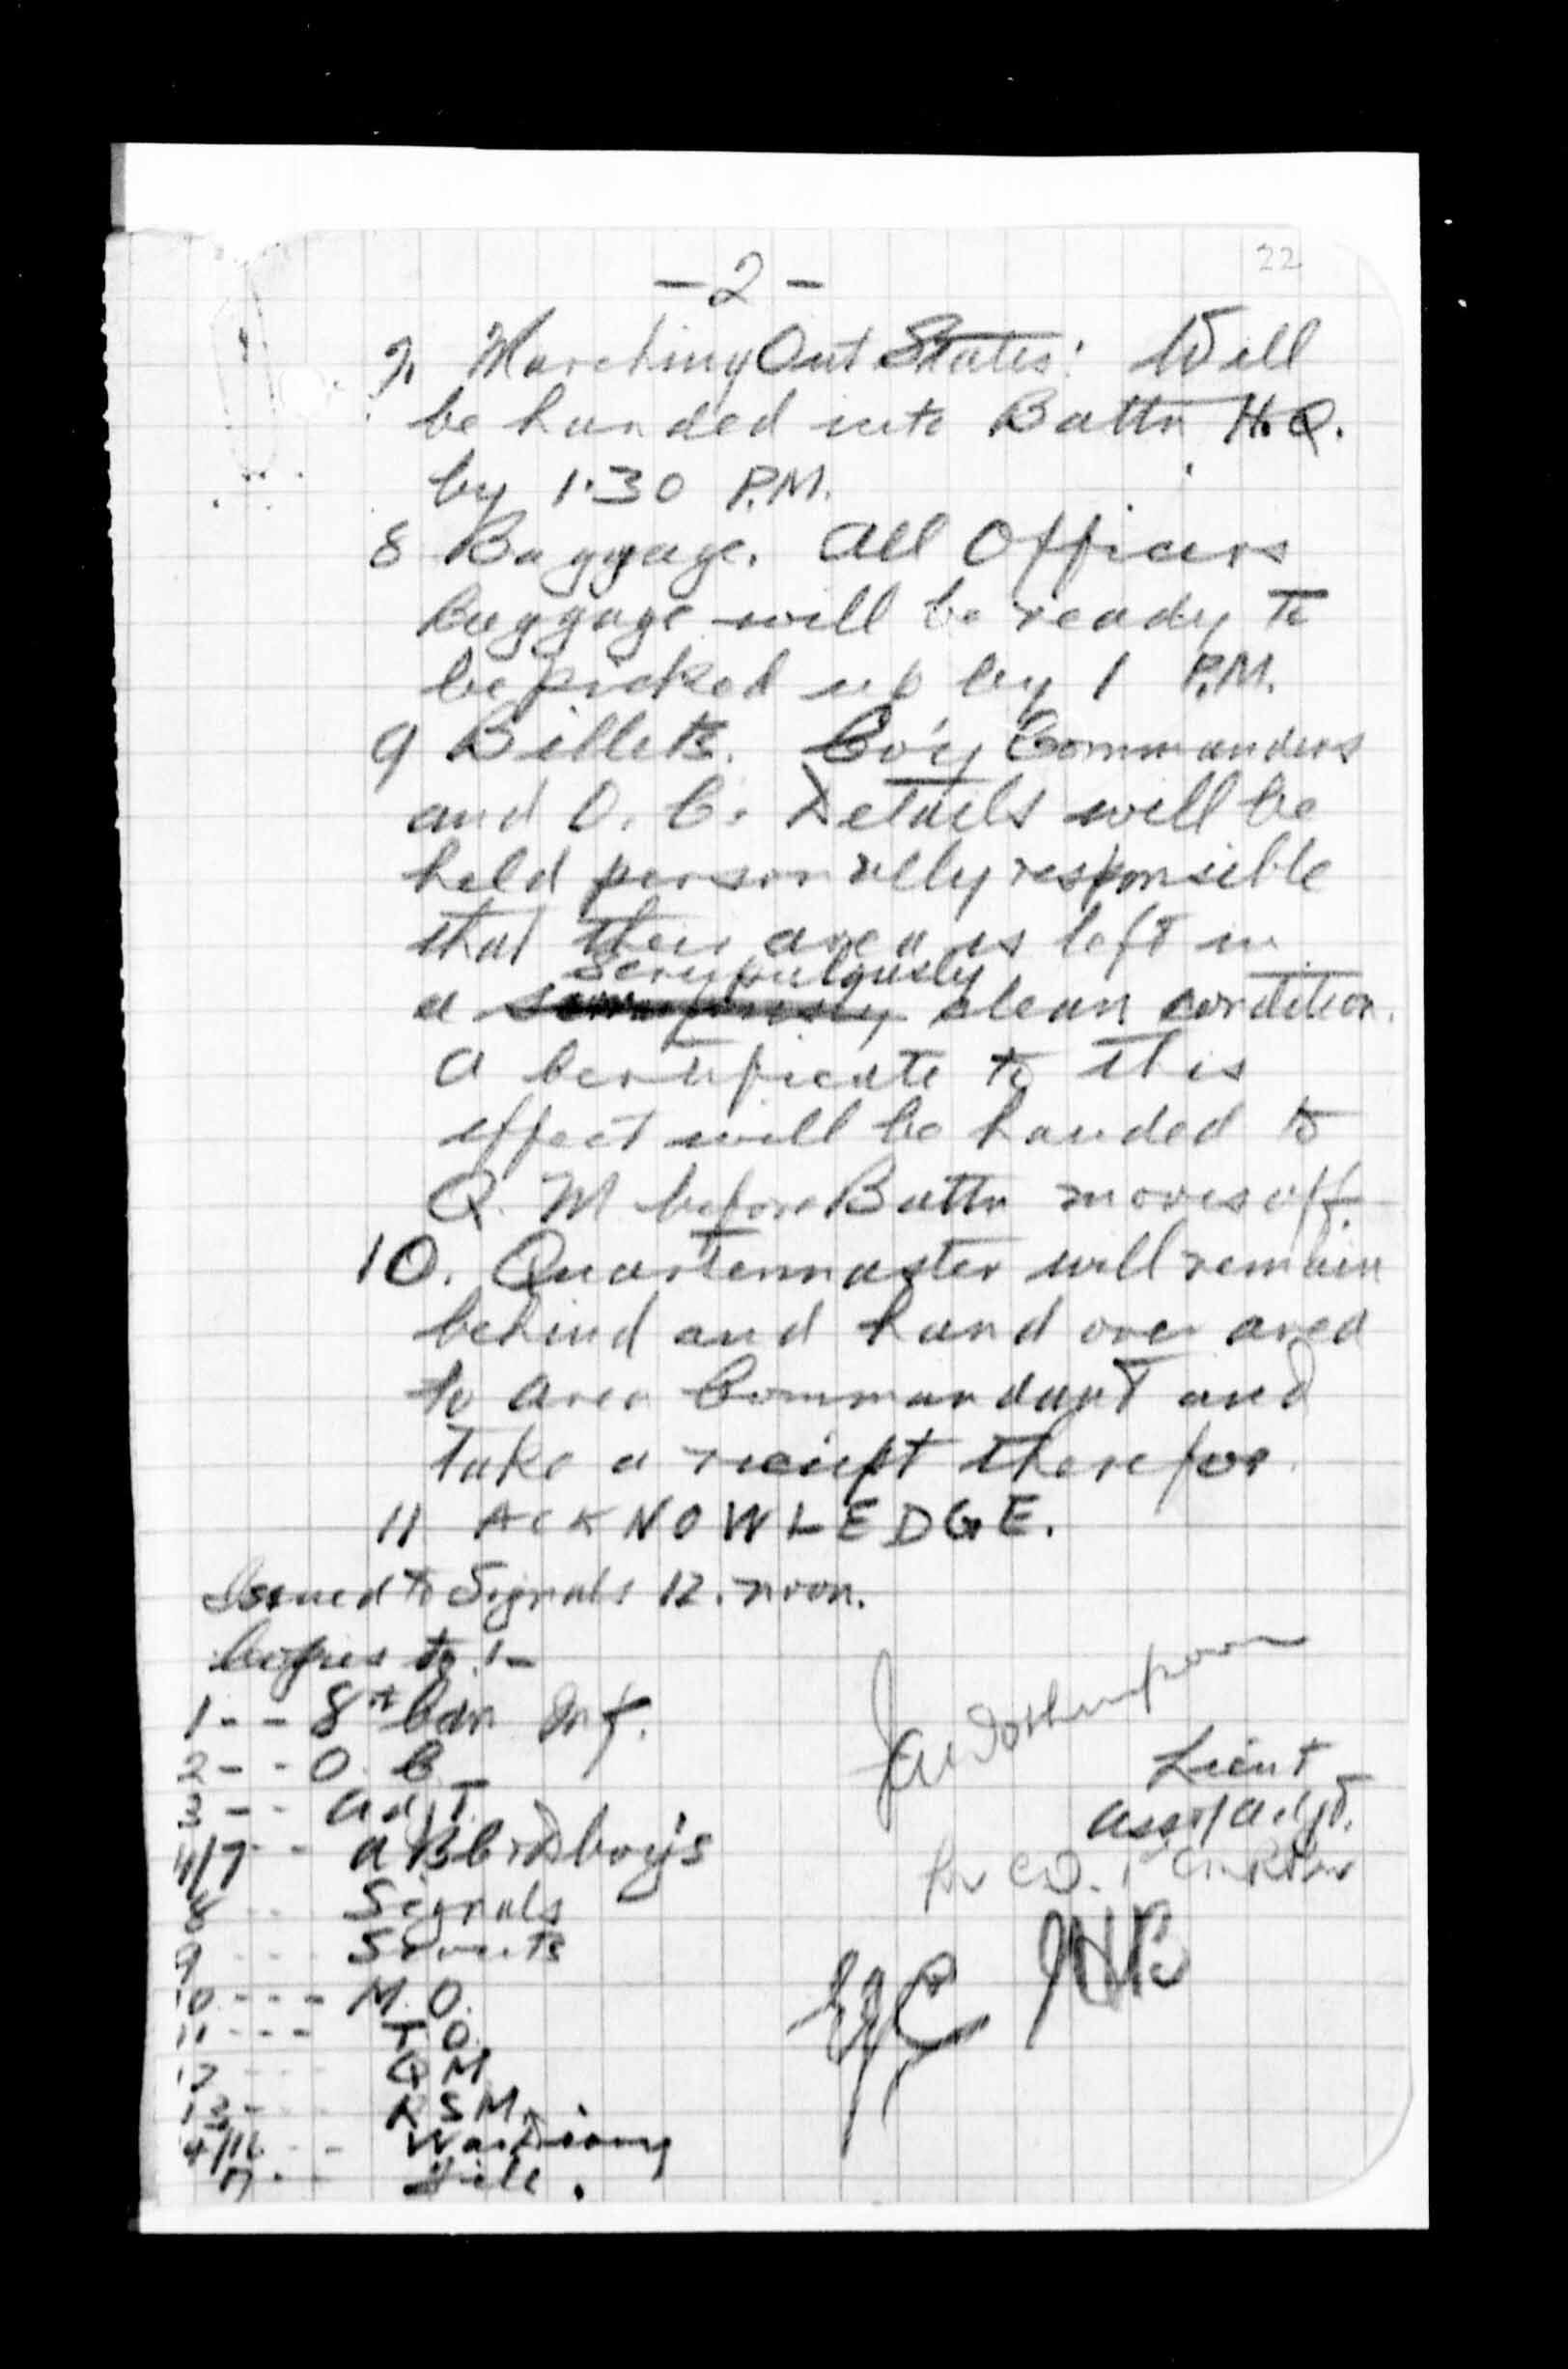 22
- 2 -
7. Marching Out States: Will
be handed into Battn H.Q.
by 1.30 P.M.
8 Baggage. All Officers
baggage will be ready to
be picked up by 1 P.M.
9 Billets. Co'y Commanders
and O.C. Details will be
held personally responsible
that their area is left in
scrupulously
a clean condition.
A Certificate to this
effect will be handed to
Q.M. before Battn moves off.
10. Quartermaster will remain
behind and hand over area
to Area Commandant and
take a reciept therefor.
11 ACKNOWLEDGE.
Issued to Signals 12. noon.
Copies to :-
1 - - 8th Cdn Inf.
2 - - O.C.
3 - - Adjt.
4/7 - - A B C & D Coy's
8 - - Signals
9 - - - Scouts
10 - - - - M.O.
11 - - - T.O.
12 - - - QM
13 - - - RSM.
14/16 - - War Diary
17 - - File.
Lieut
Asst/Adjt.
for CO. 1st